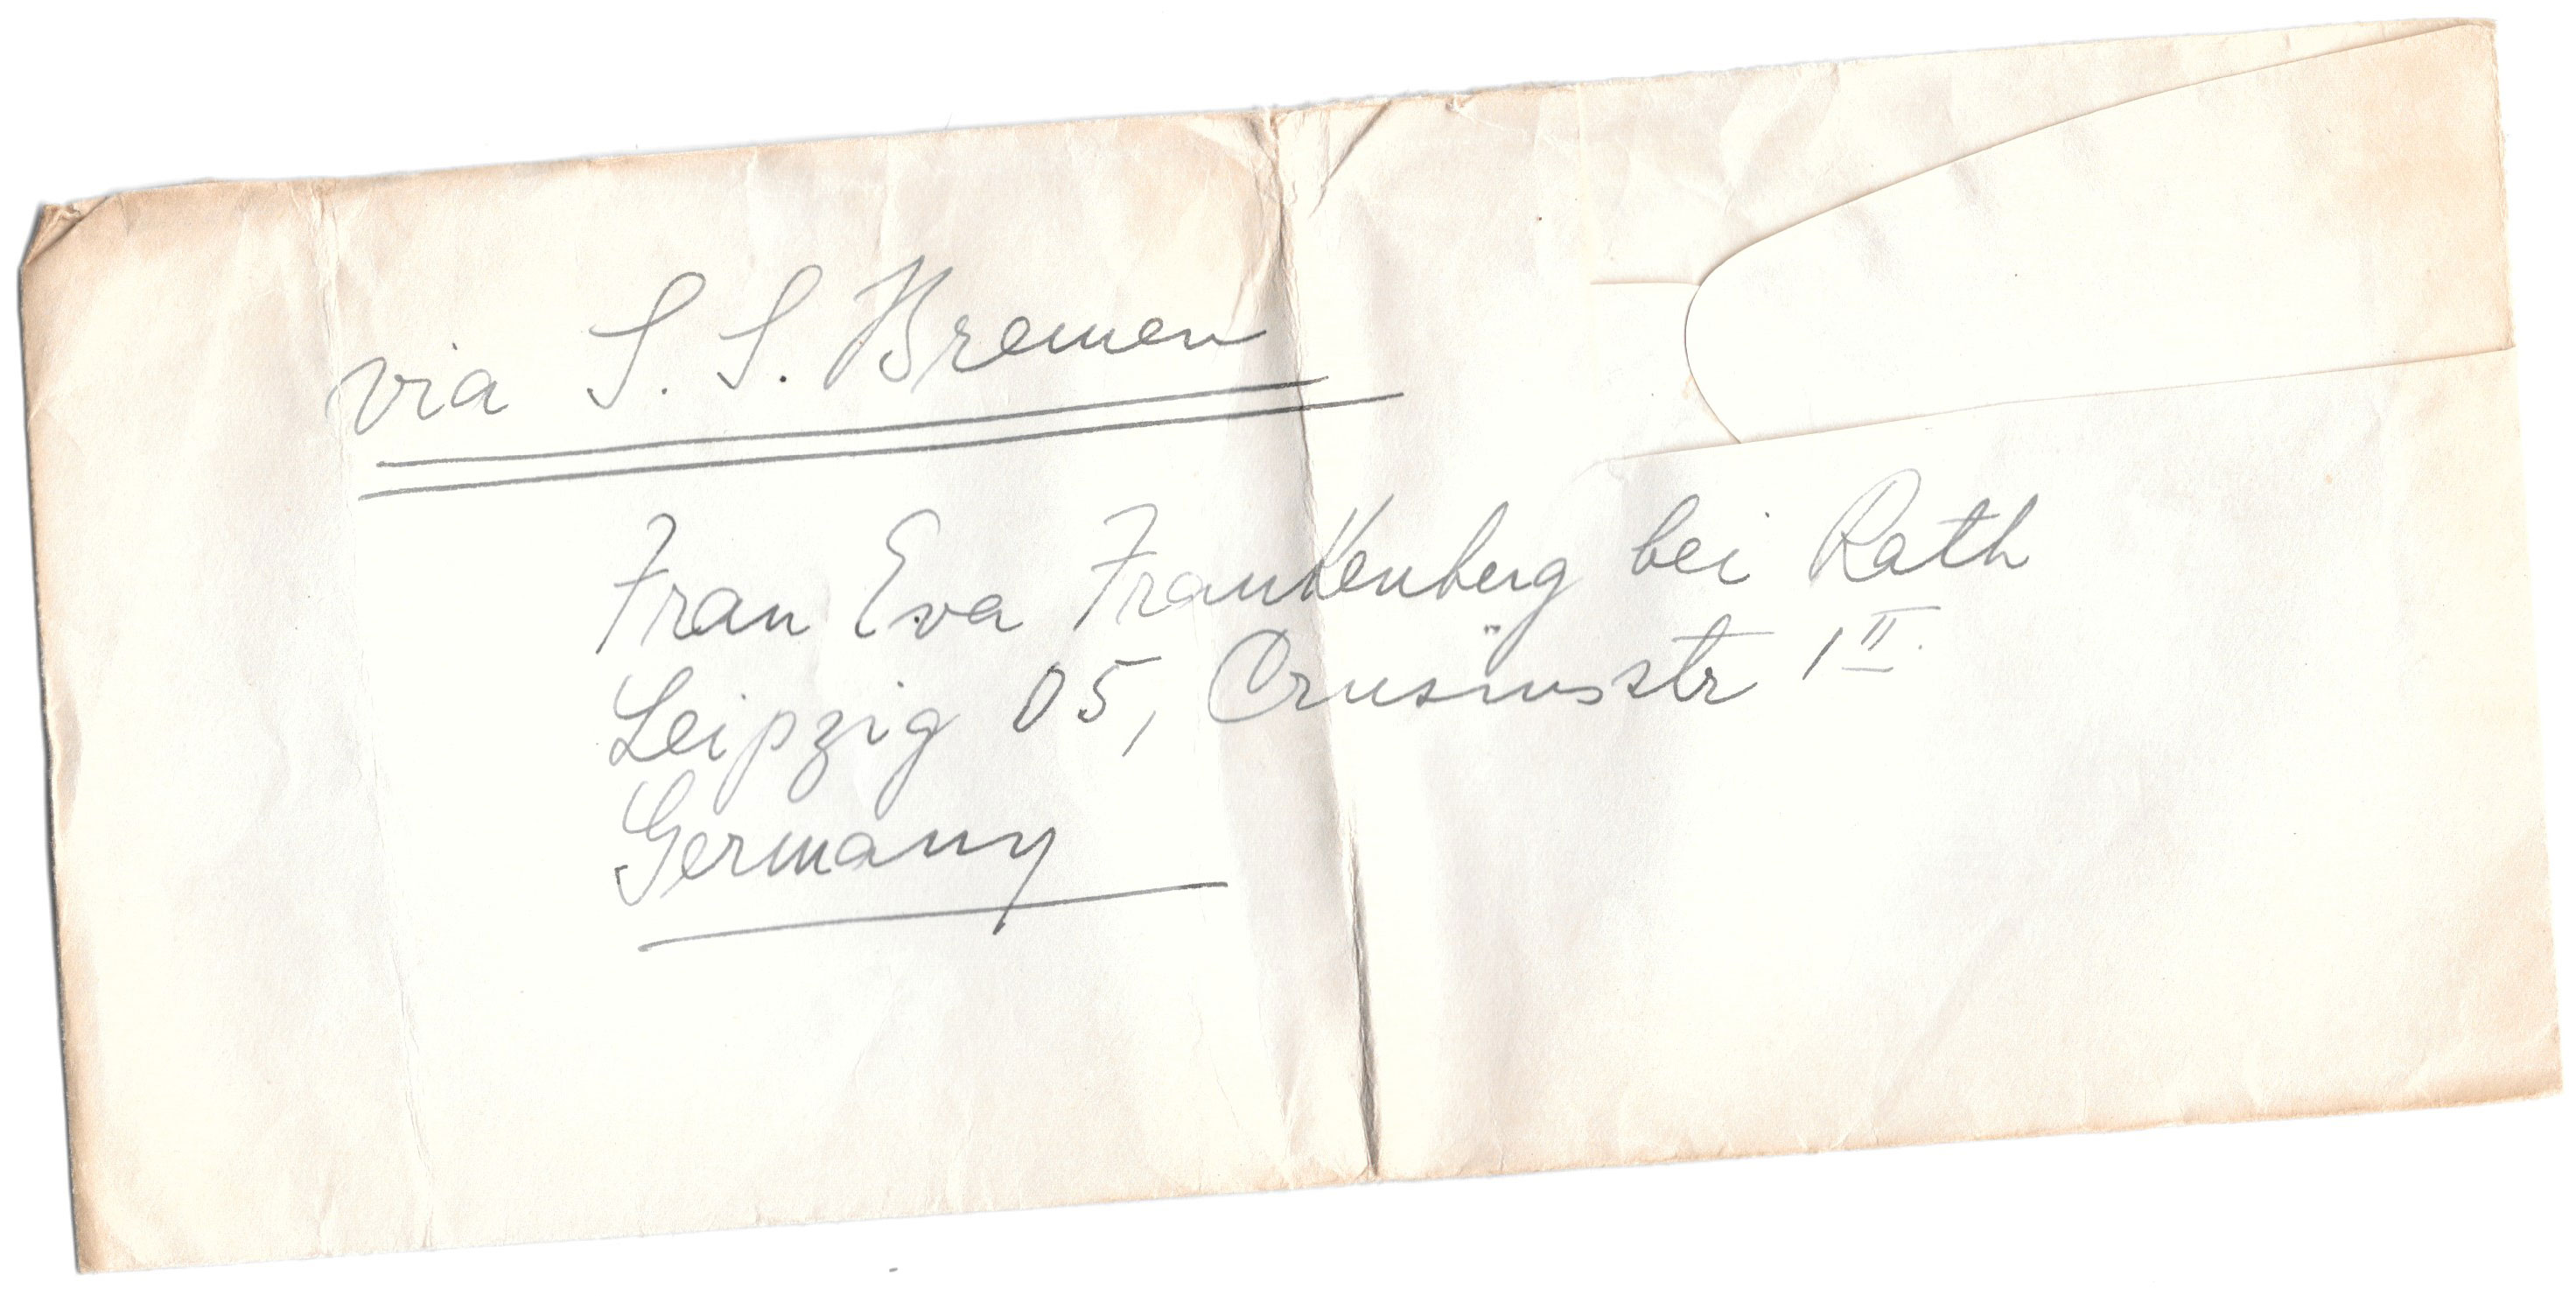 via S. S. Bremen
Frau Eva Frankenberg bei Rath
Leipzig O5, Crusiusstr 1 II.
Germany